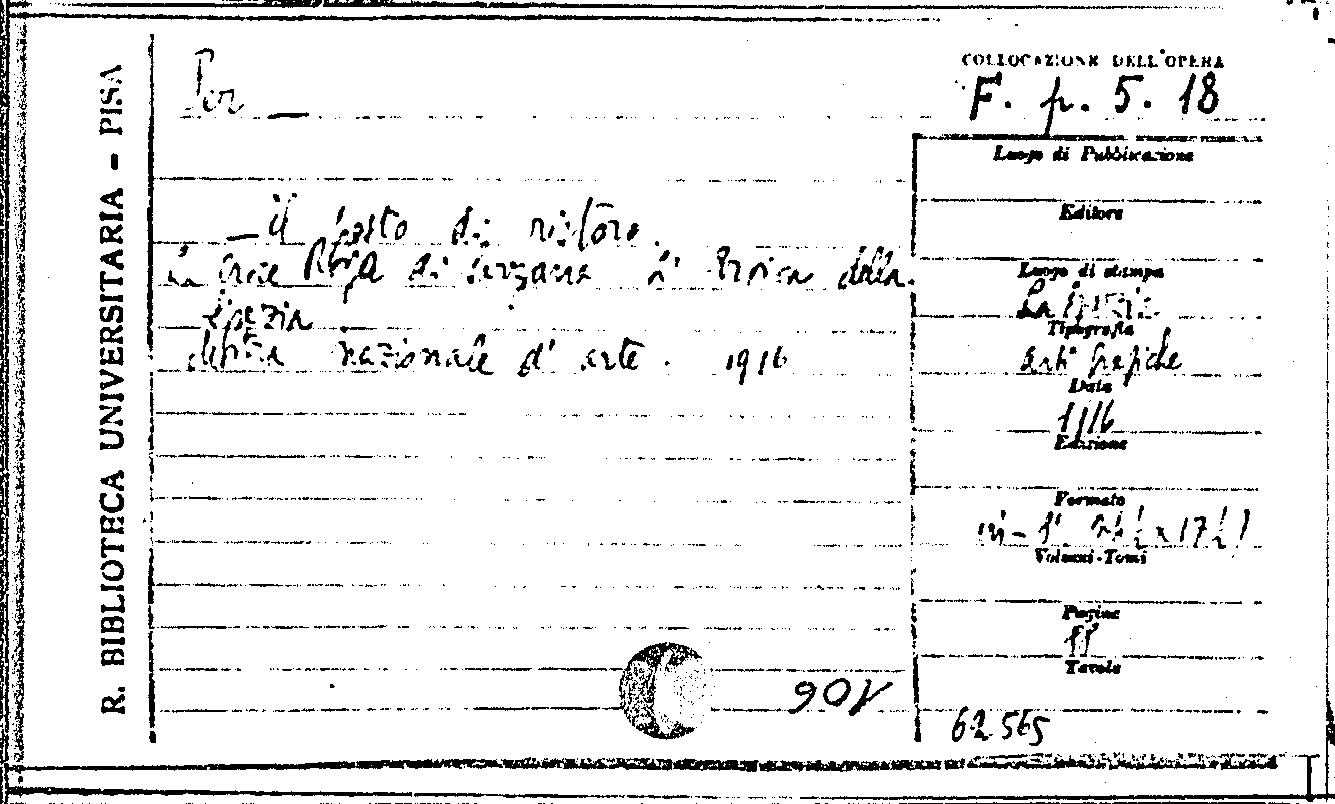 R. BIBLIOTECA UNIVERSITARIA - PISA
Per —
— il posto di ristoro.
Croce Rossa di Sarzana L' Eroica della
Spezia
nazionale d' arte. 1916
106
COLLOCAZIONE DELL'OPERA
F. p. 5. 18
Luogo di Pubblicazione
Editore
Luogo di stampa
La Spezia
Tipografia
arti grafiche
Data
1916
Edizione
Formato
in-
Volumi-Tomi
Pagine
Tavole
62565